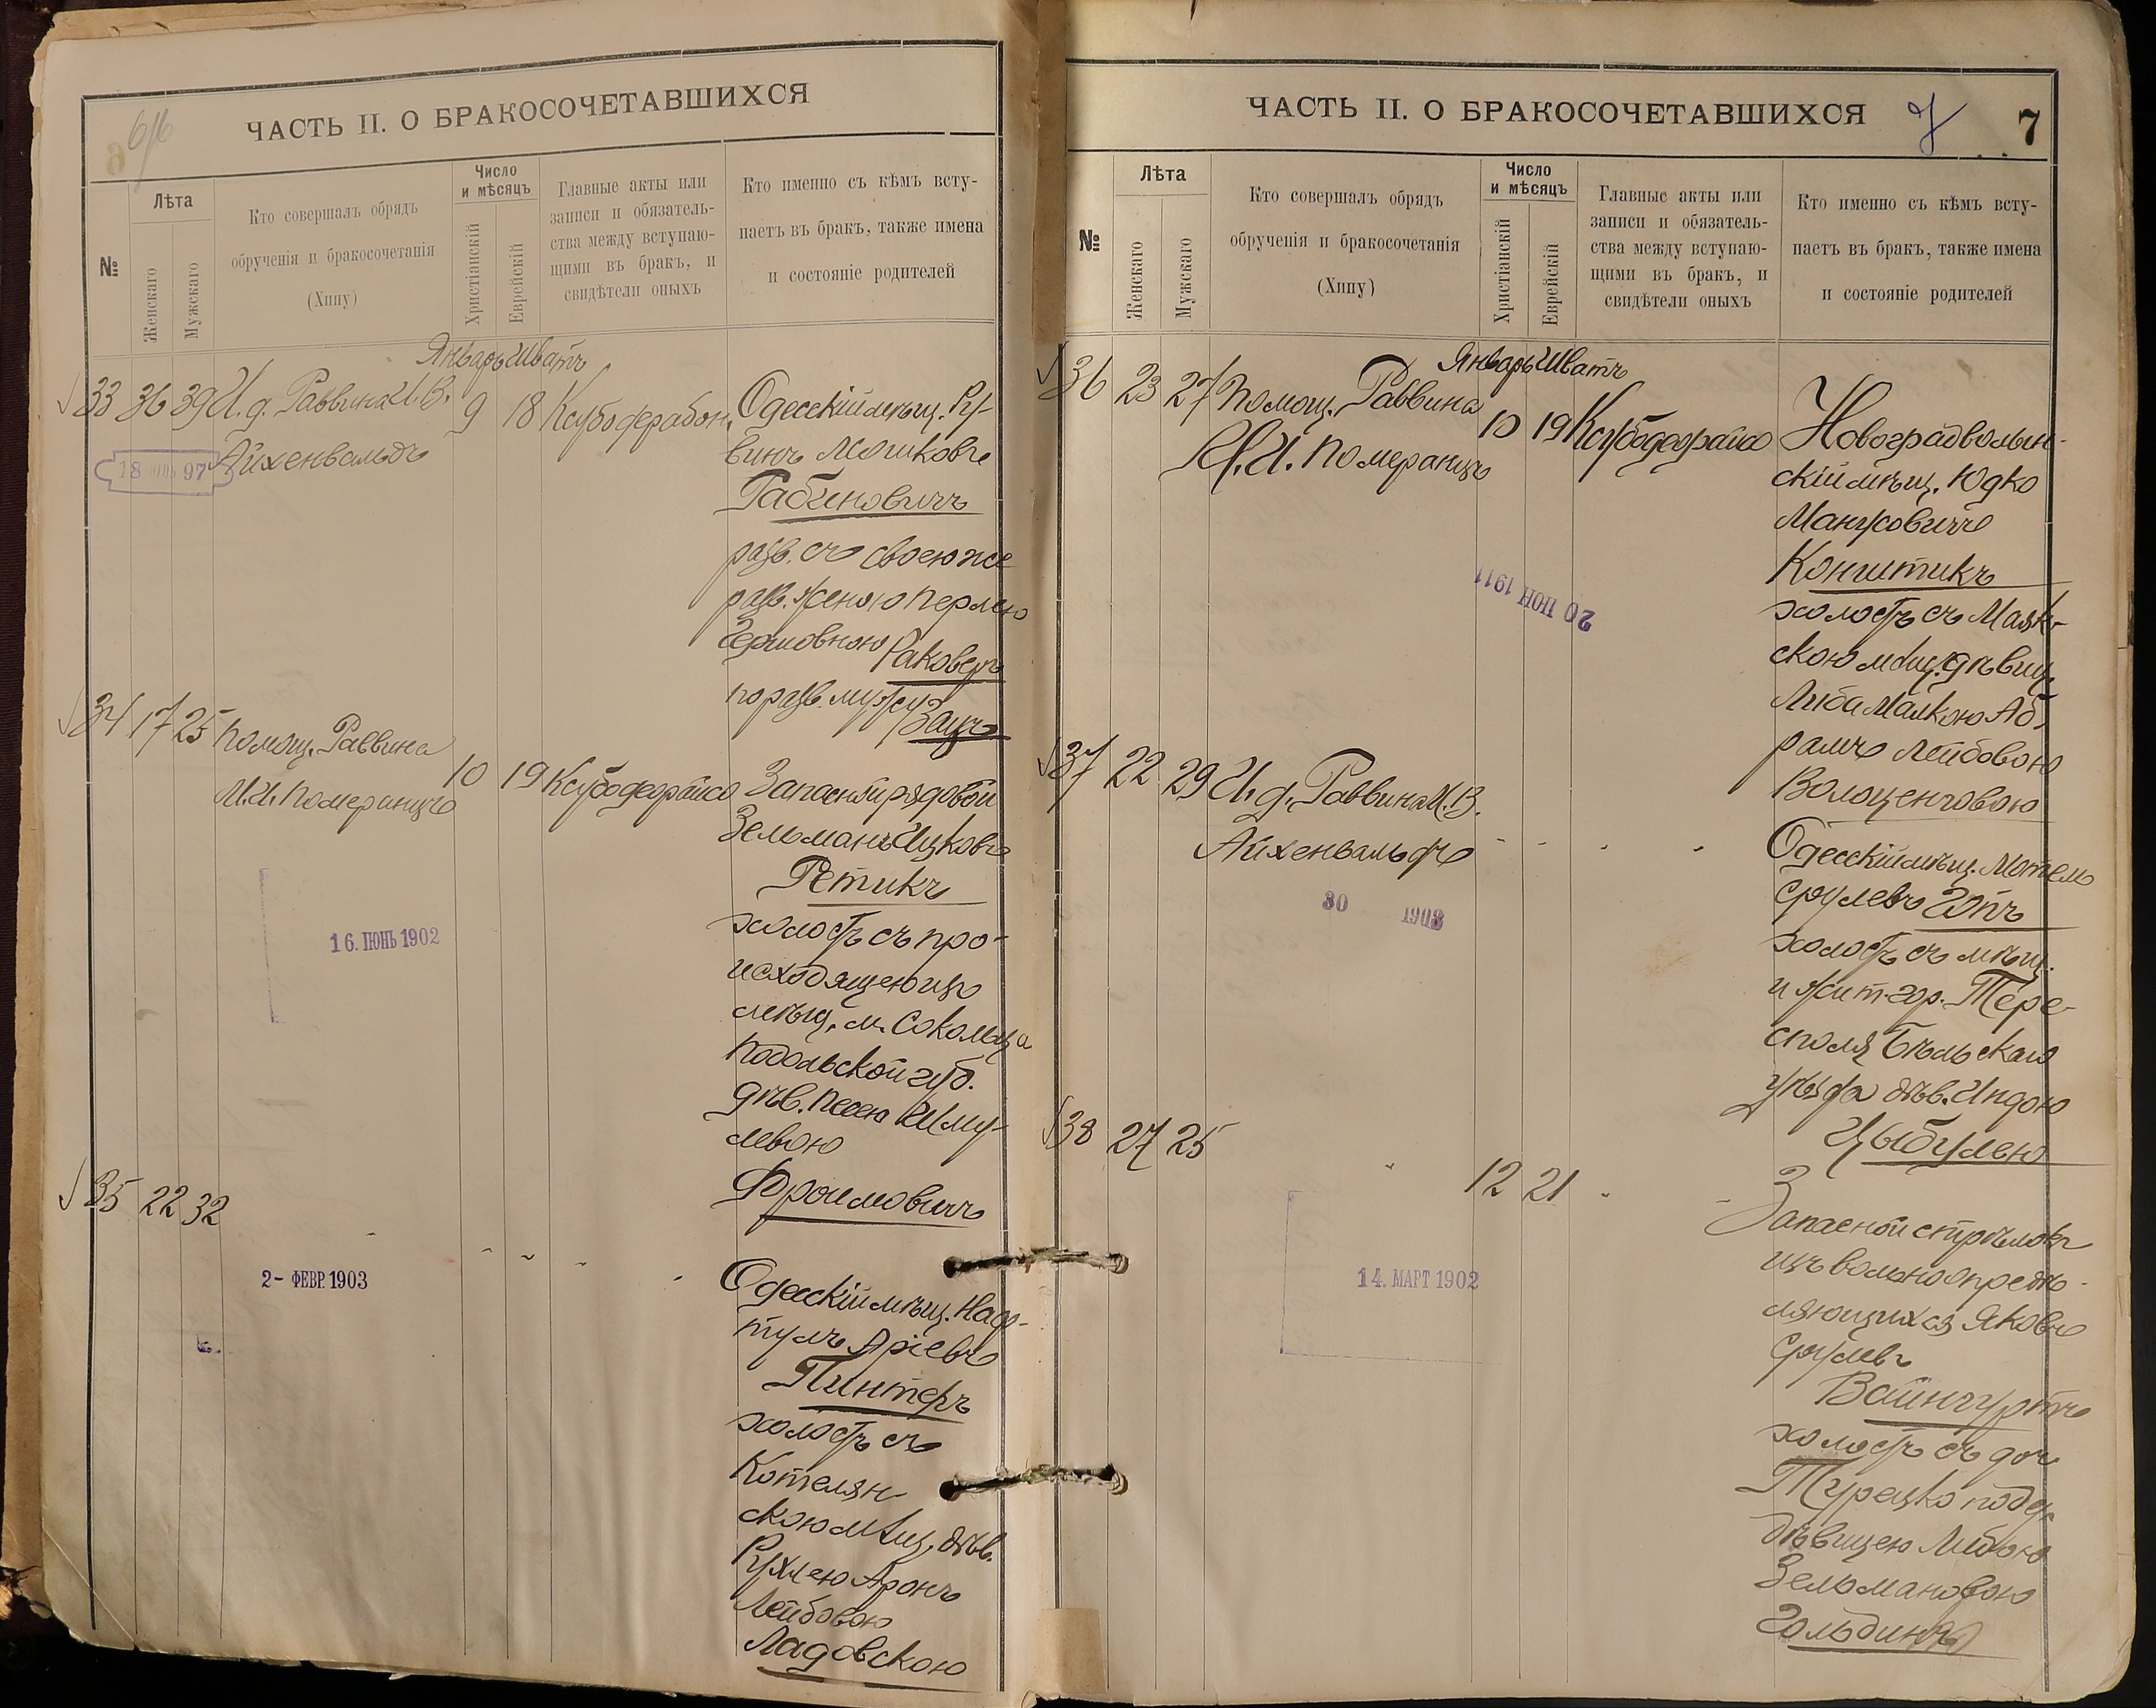 6
ЧАСТЬ II. О БРАКОСОЧЕТАВШИХСЯ
№
Лѣта
Женскаго
Мужскаго
Кто совершалъ обрядъ
обрученія и бракосочетанія
(Хипу)
Число
и мѣсяцъ
Христіанскій
Еврейскій
Главные акты или
записи и обязатель-
ства между вступаю-
щими въ бракъ, и
свидѣтели оныхъ
Кто именно съ кѣмъ всту-
паетъ въ бракъ, также имена
и состояніе родителей
Январь Шватъ
33 36 39 И. д. Раввина И. В.
Айхенвальдъ
18 97
9 18
Одесскій мѣщ. Ру-
винъ Мошковъ
Рабиновичъ
разв. съ своею же
разв. женою Перлею
Гершовною Раковеръ
по разв. мужу Зацъ
34 17 25 Помощ. Раввина
М. И. Померанцъ
10 19 Ксубо деорайсо
16. ІЮНЬ 1902
Запасный рядовой
Зельманъ Ицковъ
Ретикъ
холостъ съ про-
исходящею изъ
мѣщ. м. Сокольца
Подольской губ.
дѣв. Песею Шму-
левою
Фроимовичъ
35 22 32
2- ФЕВР. 1903
Одесскій мѣщ. Наф-
тулъ Аріевъ
Пинтеръ
холостъ съ
Котелян
скою мѣщ. дѣв.
Рухлею Аронъ
Лейбовою
Ладовскою
ЧАСТЬ II. О БРАКОСОЧЕТАВШИХСЯ
7
7
№
Лѣта
Женскаго
Мужскаго
Кто совершалъ обрядъ
обрученія и бракосочетанія
(Хипу)
Число
и мѣсяцъ
Христіанскій
Еврейскій
Главные акты или
записи и обязатель-
ства между вступаю-
щими въ бракъ, и
свидѣтели оныхъ
Кто именно съ кѣмъ всту-
паетъ въ бракъ, также имена
и состояніе родителей
Январь Шватъ
36 23 27 Помощ. Раввина
М. И. Померанцъ
10 19 Ксубо деорайсо
20 ІЮН 1911
Новоградволын-
скій мѣщ. Юдко
Манусовичъ
Конштикъ
холостъ съ Маяк-
скою мѣщ. дѣвиц.
Люба Малкою Аб-
рамъ Лейбовою
Волощенговою
37 22 29 И. д. Раввина И. В.
Айхенвальдъ
30 1903
Одесскій мѣщ. Мотель
Срулевъ
холостъ съ мѣщ.
и жит. гор. Тере-
споля Бѣльскаго
уѣзда дѣв. Индою
Цыбулею
38 27 25
12 21
14. МАРТ 1902
Запасной стрѣлокъ
изъ вольноопредѣ-
ляющихся Яковъ
Срулевъ
Вайнгуртъ
холостъ съ доч
Турецко подд.
дѣвицею Либою
Зельмановою
Гольдингъ